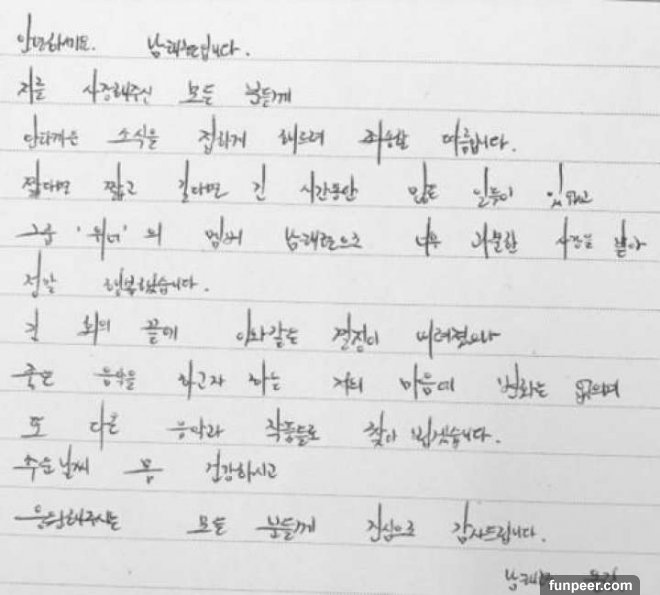 안녕하세요. 남태현입니다.
저를 사랑해주신 모든 분들께
안타까운 소식을 접하게 해드려 죄송할 따름입니다.
짧다면 짧고 길다면 긴 시간동안 많은 일들이 있었고
그룹 '위너'의 멤버 남태현으로 너무 과분한 사랑을 받아
정말 행복했습니다.
긴 회의 끝에 이와같은 결정이 내려졌으나
좋은 음악을 하고자 하는 저의 마음에 변화는 없으며
또 다른 음악과 작품들로 찾아 뵙겠습니다.
추운날씨 몸 건강하시고
응원해주시는 모든 분들께 진심으로 감사드립니다.
남태현
funpeer.com